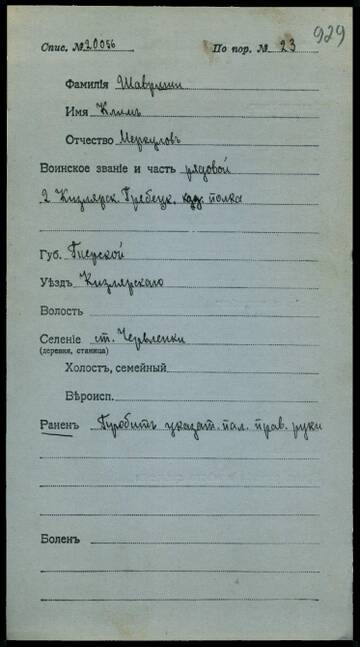 929
Спис. № 20056 По пор. № 23
Фамилія Шаврулин
Имя Климъ
Отчество Меркуловъ
Воинское званіе и часть рядовой
2 Кизлярск. Гребецк. полка
Губ. Терской
Уѣздъ Кизлярскаго
Волость
Селеніе ст. Червленки
(деревня, станица)
Холостъ, семейный
Вѣроисп.
Раненъ Пробитъ указат. пал. прав. руки
Боленъ